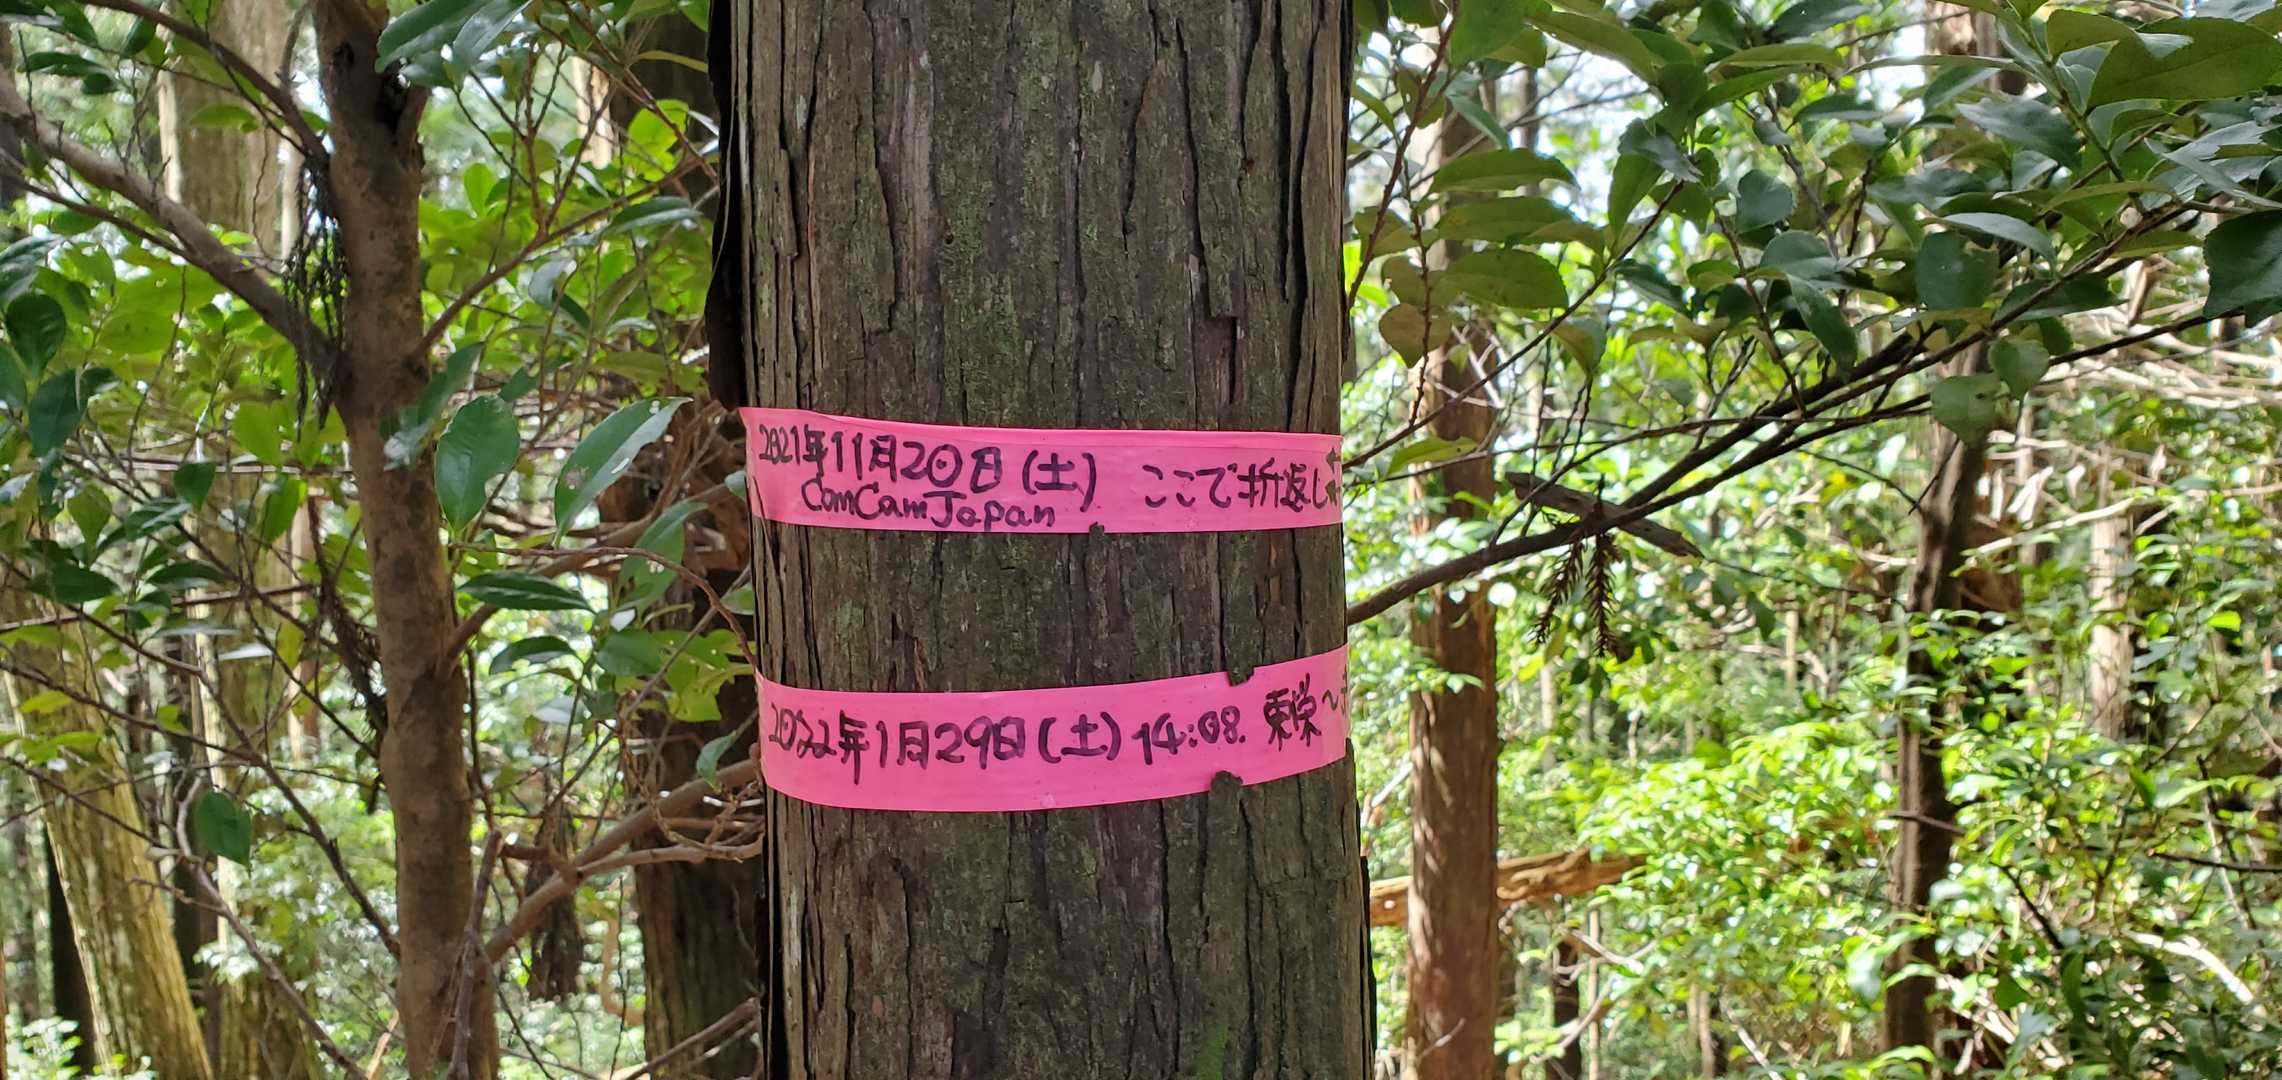 2021年11月20日(土) ここで折返し
ComCamJapan
2022年1月29日(土) 14:08. 東栄〜